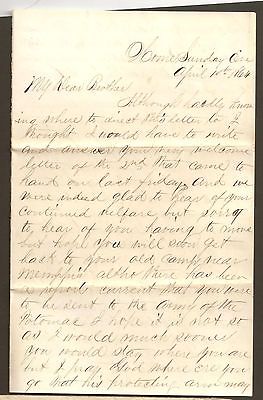 Home Sunday Eve
April 10th, 1864
My Dear Brother
Although hardly know
ing where to direct this letter to I
thought I would have to write
and answer your very welcome
letter of the 2nd that came to
hand on last friday, and we
were indeed glad to hear of your
continued welfare but sorry
to, hear of you having to move
but hope you will soon get
back to your old camp near
Memphis altho there has been
a report current that you were
to be sent to the Army of the
Potomac I hope it is not so
as I would much sooner
you would stay where you are
but I pray God where ere you
go that his protecting arm may